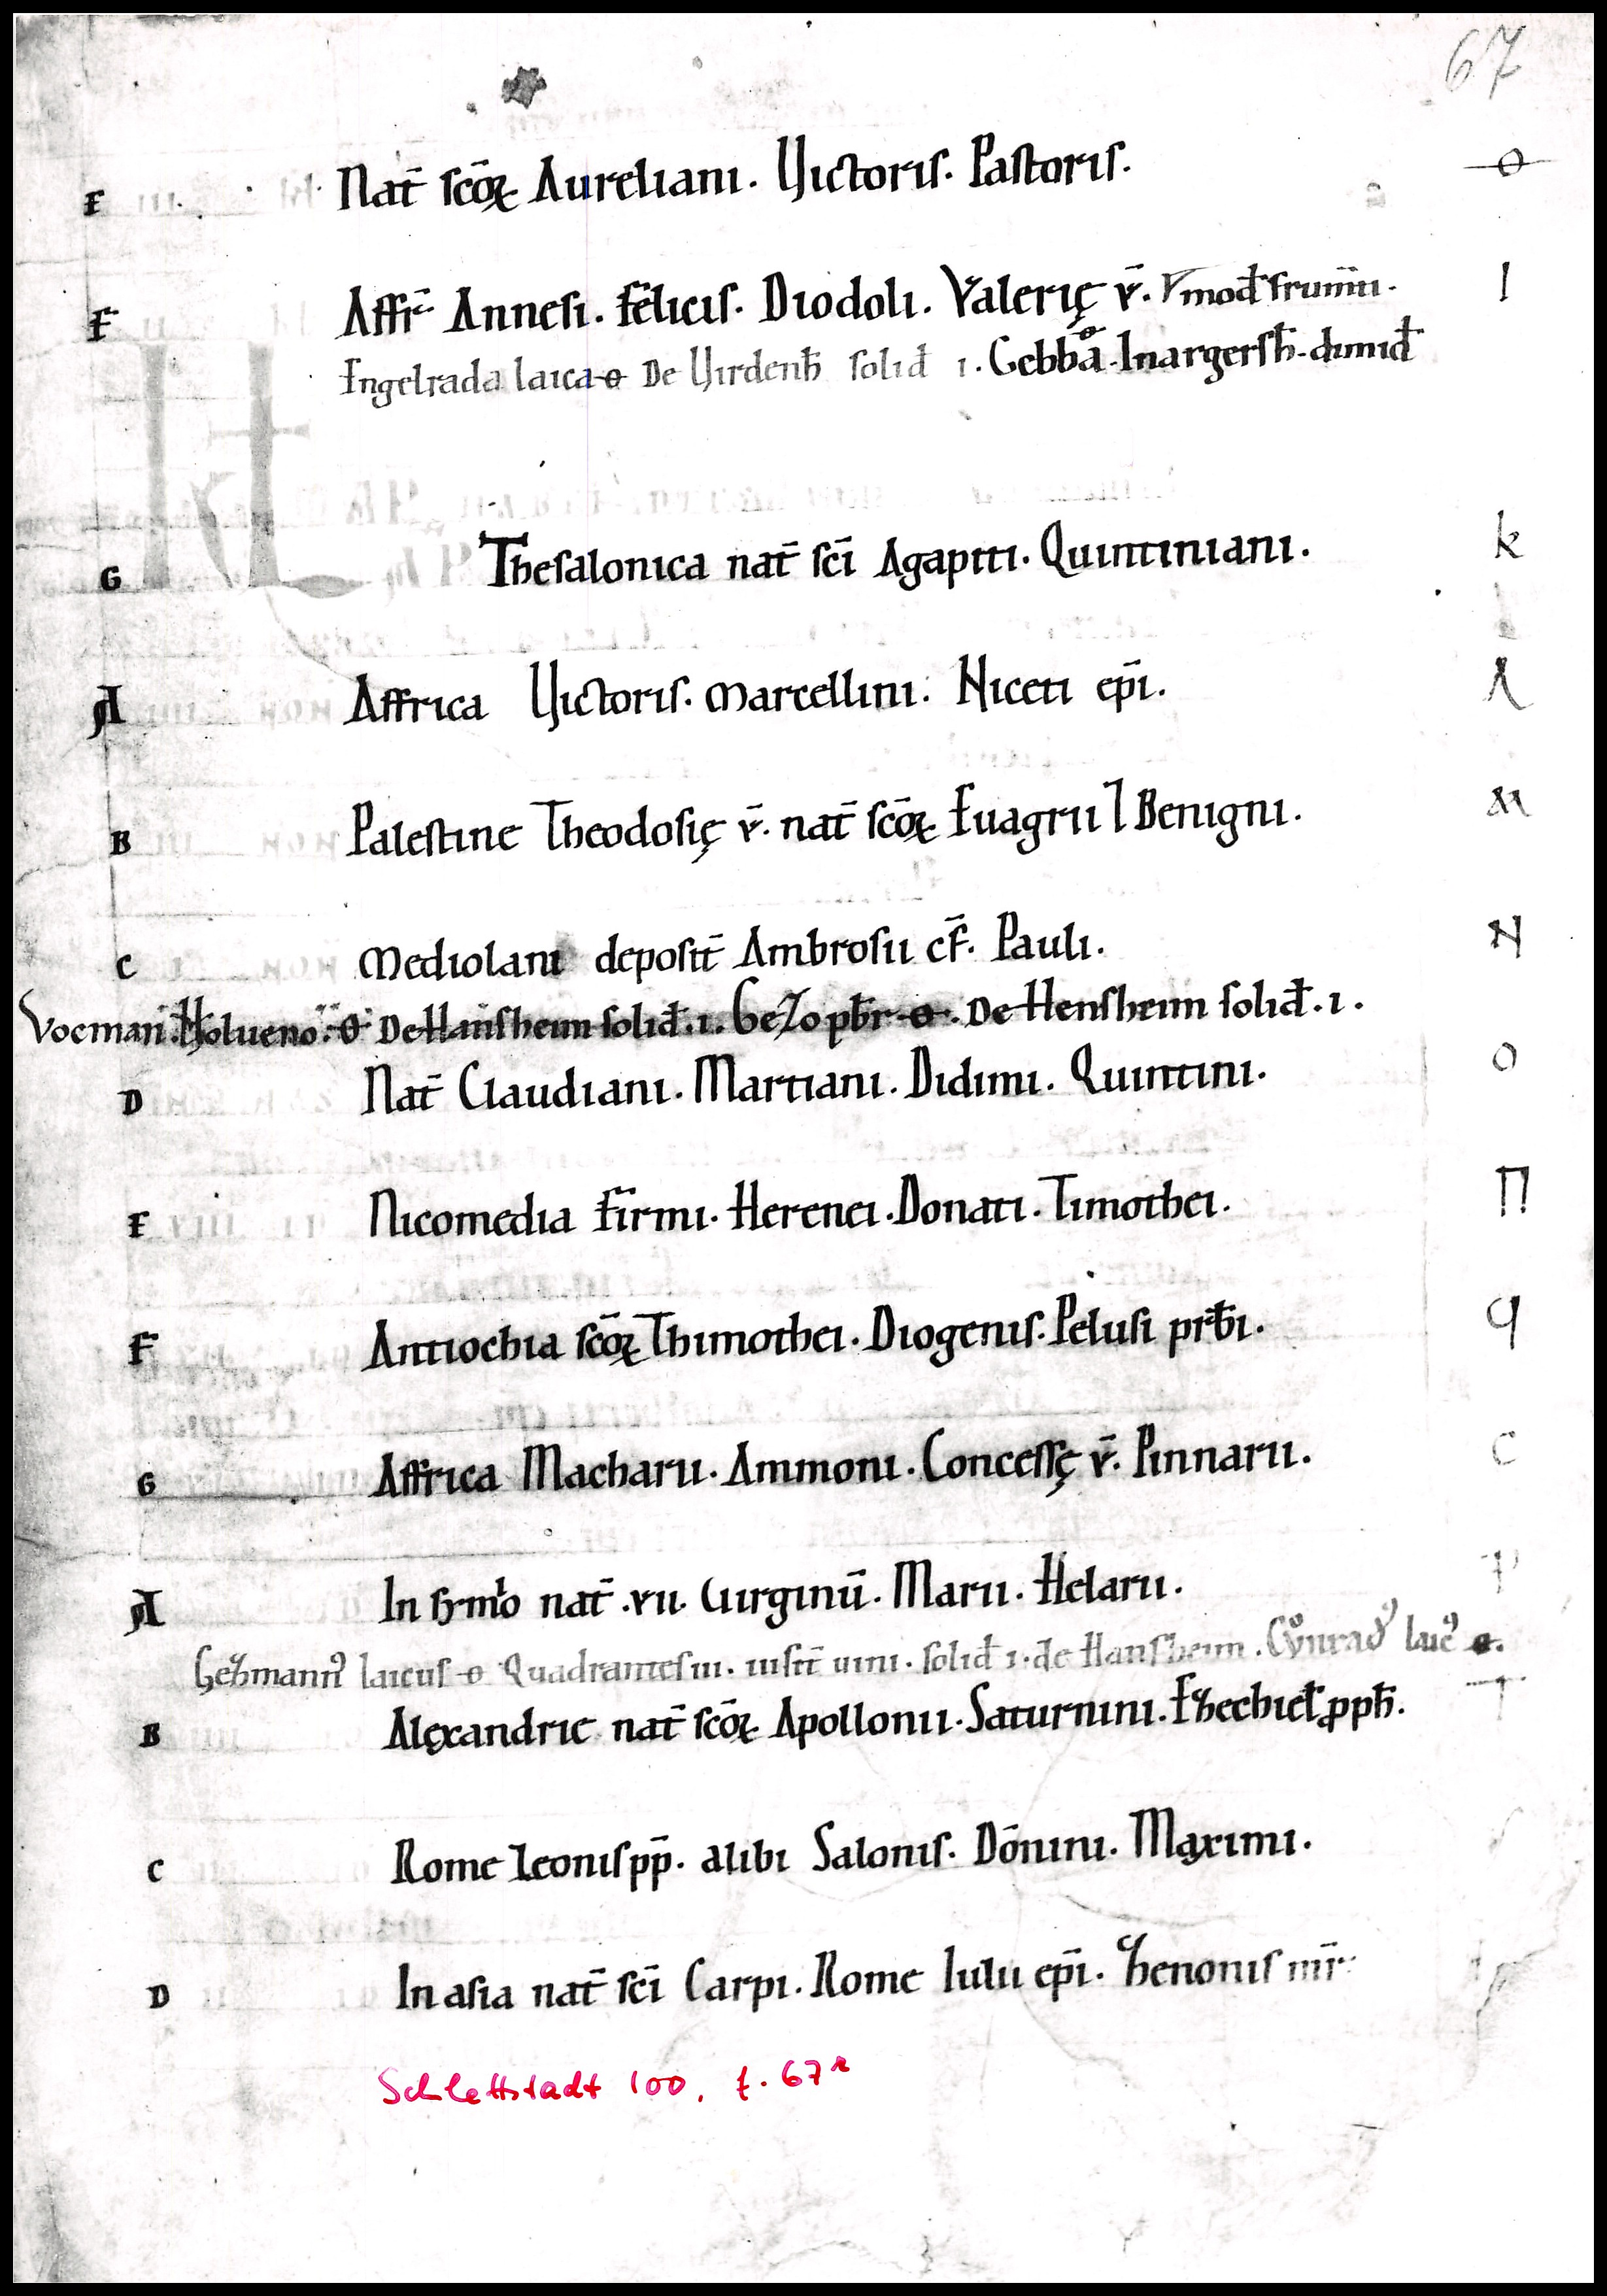 67
E Nat̄ sc̄oꝝ Aureliani. Victoris. Pastoris. ɵ
F Affr̄ Annesi. felicis. Diodoli. Valerię v̄. vmod̄ frum̄ti. I
Engelrada laica ɵ De Virdenh̄ solid̄ 1. Gebba ɵ. Inargersh̄. dimid̄
KL
G Thesalonica nat̄ sc̄i Agapiti. Quintiniani. k
A Affrica Victoris. marcellini. Niceti ep̄i. λ
B Palestine Theodosię v̄. nat̄ sc̄oꝝ Euagrii ⁊ Benigni. M
C mediolani deposit̄ Ambrosii cf̄. Pauli. N
Vocman. Holueno. ɵ De Hansheim solid̄. 1. Gezo pb̄r ɵ. De Hensheim solid̄. 1.
D Nat̄ Claudiani. Martiani. Didimi. Quintini. O
E Nicomedia firmi. Herenei. Donati. Timothei. Π
F Antiochia sc̄oꝝ Thimothei. Diogenis. Pelusi prb̄i. q
G Affrica Macharii. Ammoni. Concessę v̄. Pinnarii. C
A In syrmio nat̄ .vii. Uirginū. Marii. Helarii. P
Hezmannꝰ laicus ɵ Quadrantes iii. iust̄ uini. solid̄ 1. de Hansheim. Cͦvnradꝰ laicꝰ ɵ.
B Alęxandrie nat̄ sc̄oꝝ Apollonii. Saturnini. Ezechiel̄ ꝓph̄. T
C Rome Leonis pp̄. alibi Salonis. Dōnini. Maximi.
D In asia nat̄ sc̄i Carpi. Rome Iulii ep̄i. Zenonis m̄r.
Schlettstadt 100, f. 67ʳ